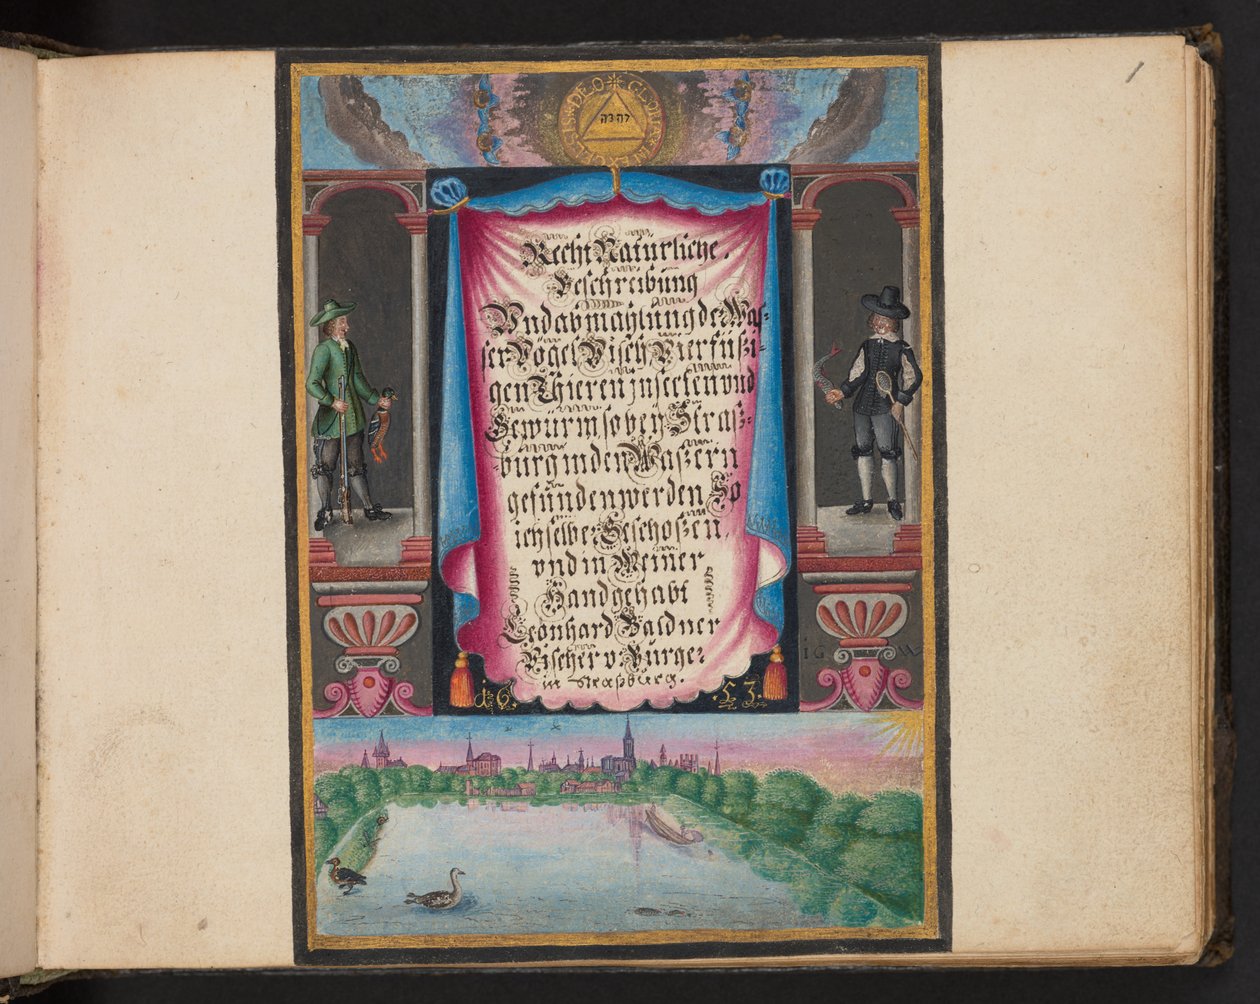 GLORIA IN EXCELSIS DEO
Recht Natürliche
Beschreibung
Vnd abmahlung der Waſ-
ſer Vögel Viſch Vierfüszi-
gen Thieren inſecten vnd
Gewürm, ſo bey Straſz-
burg in den Waſzern
gefunden werden So
ich ſelber Geſchoſzen,
vnd in Meiner
Hand gehabt
Leonhard Baldner
Viſcher v. Burger
in Straſzburg.
16 53.
IG W
1